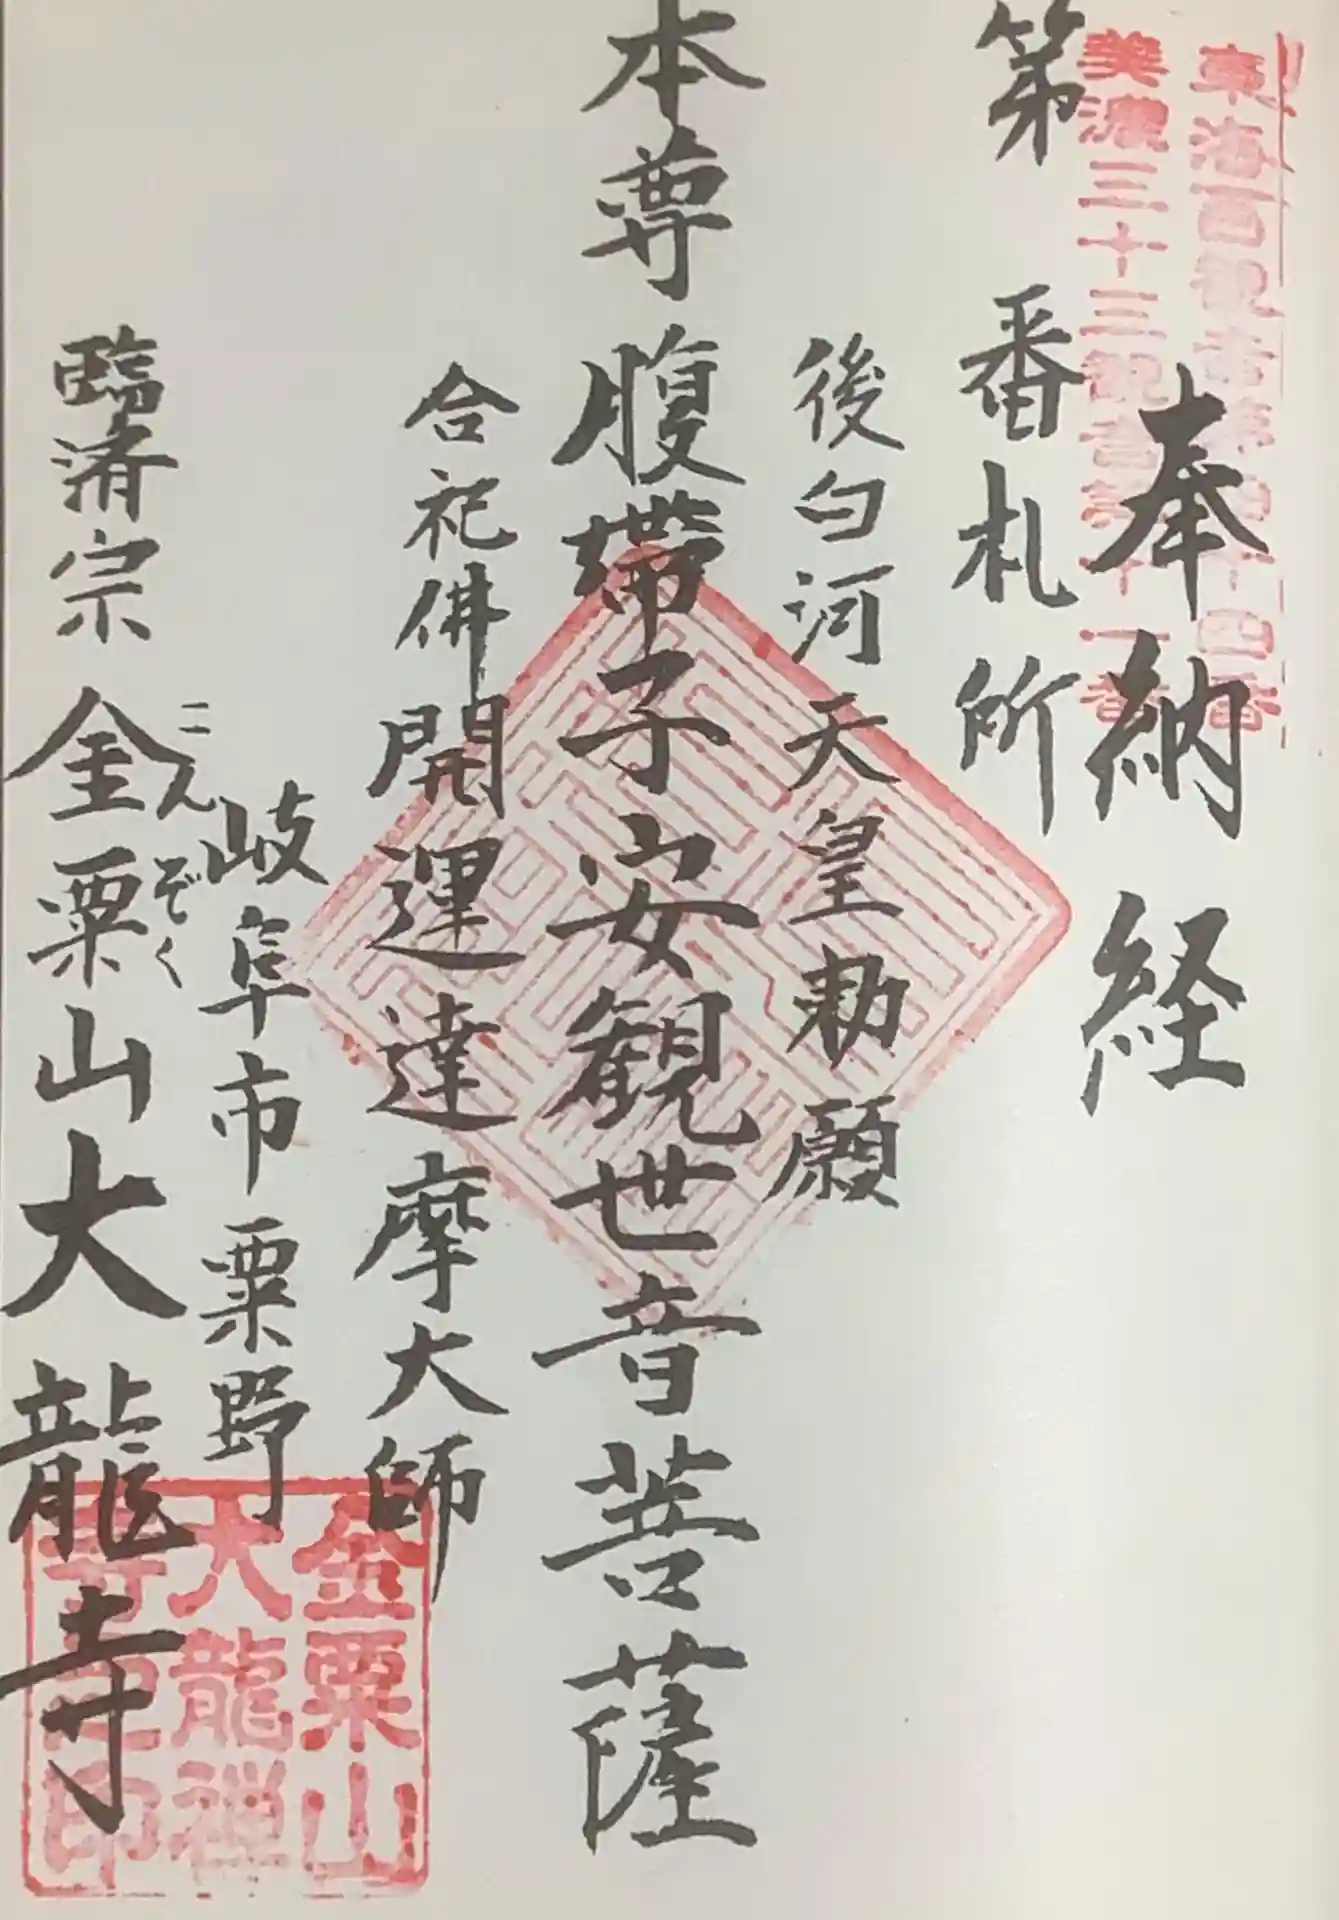 東海百観音第四十四番
美濃三十三観音第十一番
奉納経
第 番札所
後白河天皇勅願
本尊腹帯子安観世音菩薩
合祀佛開運達摩大師
岐阜市粟野
臨済宗金粟山大龍寺
こんぞく
金粟山
大龍禅
寺之印